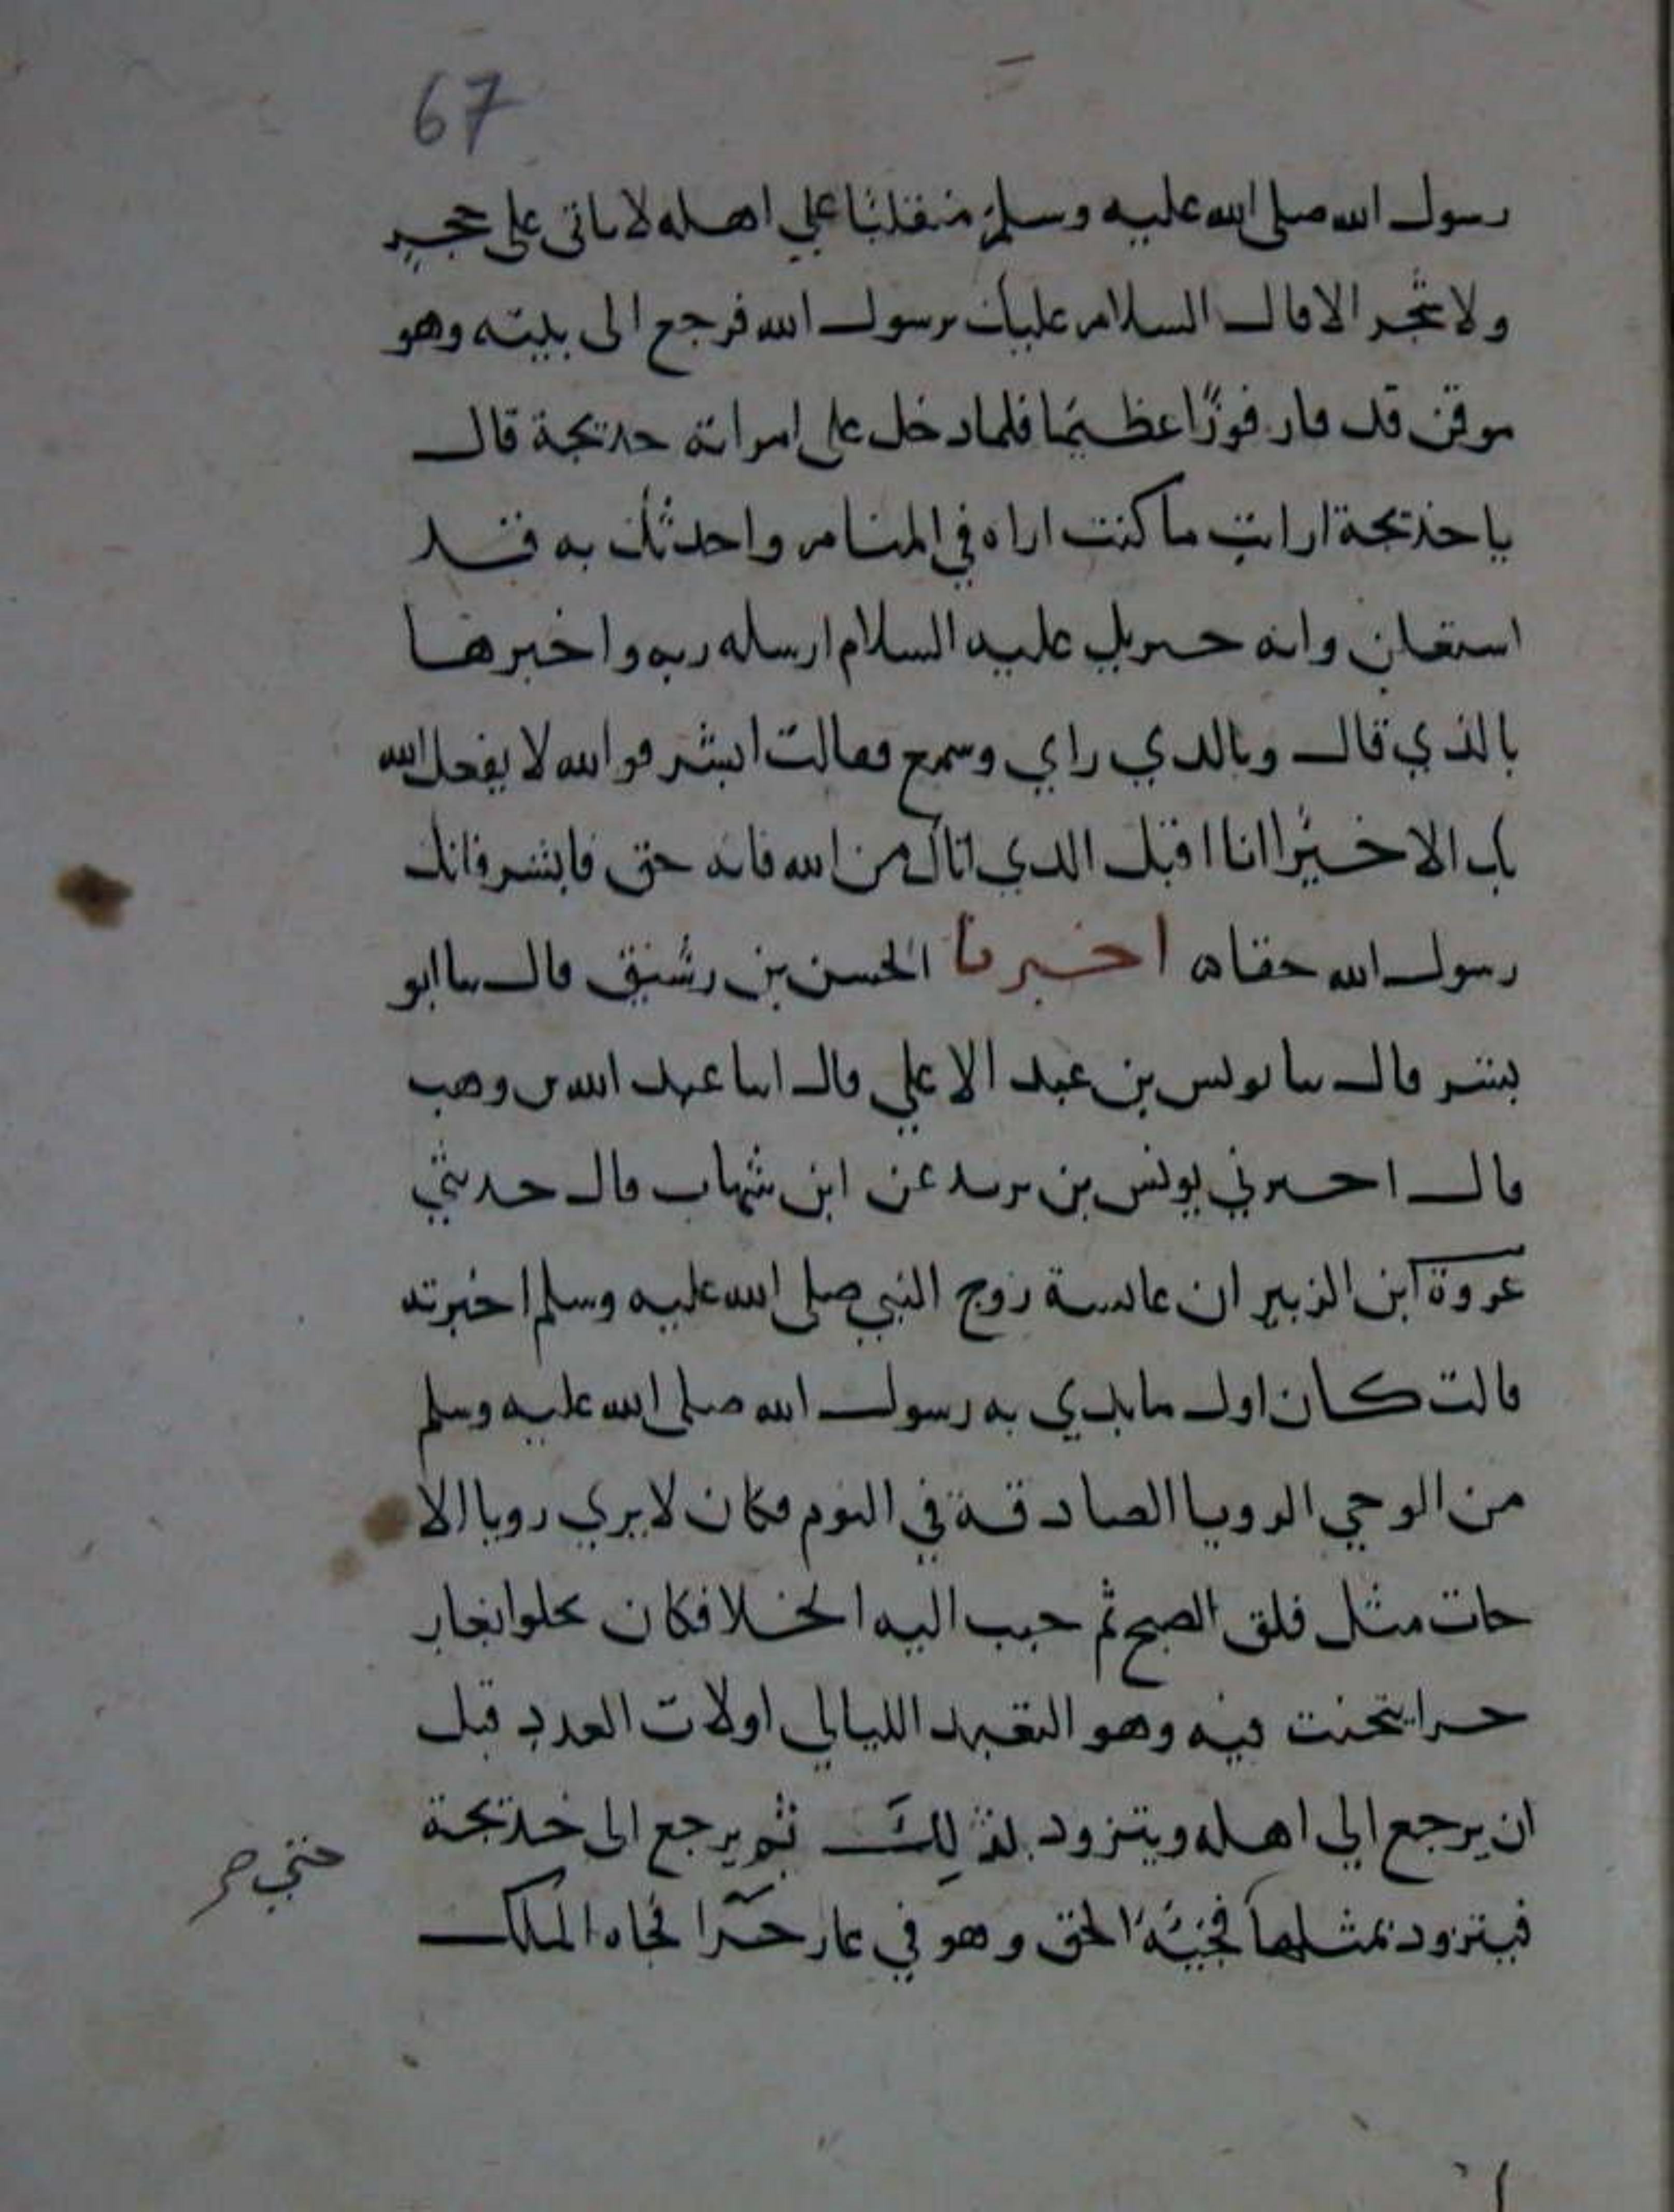 67
رسول الله صلى الله عليه وسلم منقلبا علي اهله لا ياتى على حجر
ولا شجر الا قال السلام عليك يرسول الله فرجع الى بيته وهو
موقن قد فاز فوزا عظيما فلما دخل على امراته خديجة قال
يا خديجة ارايت ما كنت اراه في المنام واحدثك به فقد
استعلن وانه جبريل عليه السلام ارسله ربه واخبرها
بالذي قال وبالذي راي وسمع فقالت ابشر فوالله لا يفعل الله
بك الا خيرا انا اقبل الذي اتاك من الله فانه حق فابشر فانك
رسول الله حقا ه اخبرنا الحسن بن رشيق قال نا ابو
بشر قال نا يونس بن عبد الاعلي قال انا عبد الله بن وهب
قال اخبرني يونس بن يزيد عن ابن شهاب قال حدثني
عروة ابن الزبير ان عائشة زوج النبي صلى الله عليه وسلم اخبرته
قالت كان اول ما بدي به رسول الله صلى الله عليه وسلم
من الوحي الرويا الصادقة في النوم فكان لا يري رويا الا
جات مثل فلق الصبح ثم حبب اليه الخلا فكان يخلوا بغار
حرا يتحنث فيه وهو التعبد الليالي اولات العدد قبل
ان يرجع الي اهله ويتزود لذلك ثم يرجع الى خديجة
فيتزود بمثلها فجيه الحق وهو في غار حرا فجاه الملك